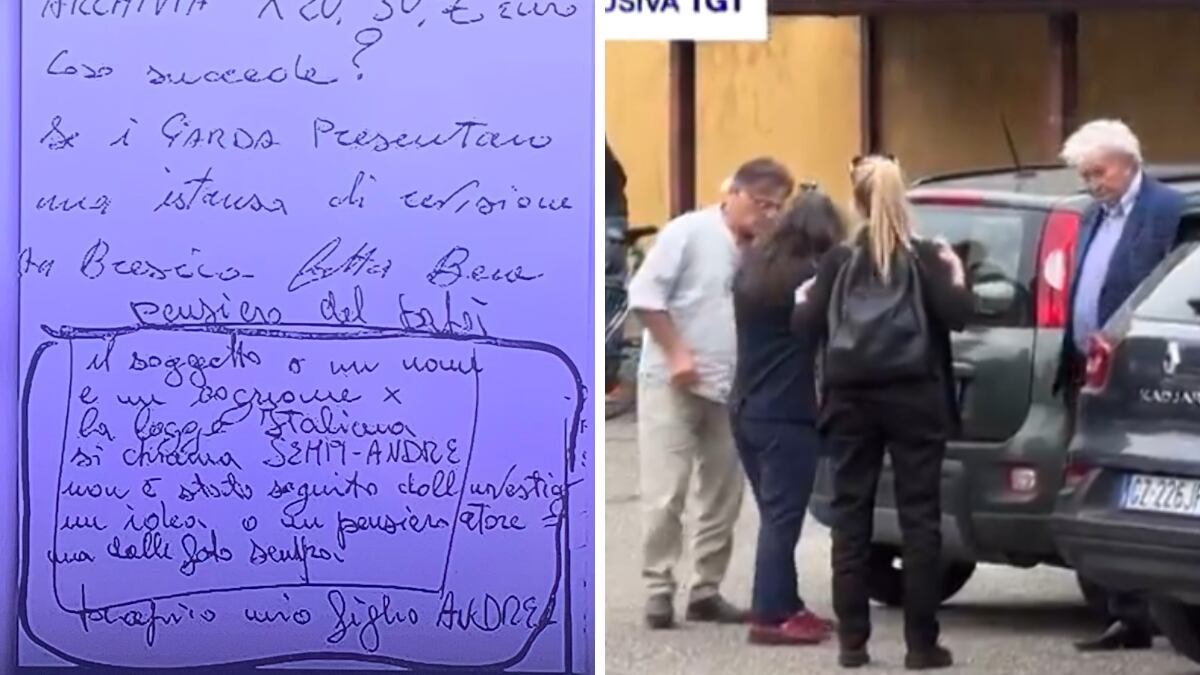 ARCHIVIA X 20, 30, € euro
Cosa succede?
Se i GARDA Presentano
una istanza di revisione
a Brescia fatta Bene
pensiero del
il soggetto o un nome
e un cognome x
la legge Italiana
si chiama SEMPI-ANDRE
non è stato seguito dall investig
un idea o un pensiero atore =
ma dalle foto sembra
mio figlio ANDREA
USIVA TG1
KADJAR
GZ 226